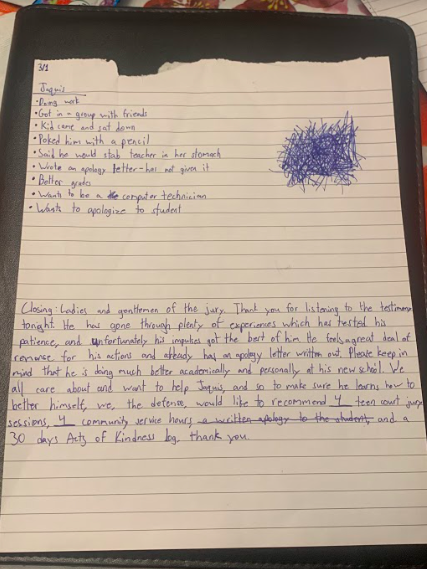 3/1
Jaquis
• Doing work
• Got in a group with friends
• Kid came and sat down
• Poked him with a pencil
• Said he would stab teacher in her stomach
• Wrote an apology letter - has not given it
• Better grades
• Wants to be a computer technician
• Wants to apologize to student
Closing: Ladies and gentlemen of the jury. Thank you for listening to the testimony
tonight. He has gone through plenty of experiences which has tested his
patience, and unfortunately his impulses got the best of him. He feels a great deal of
remorse for his actions and already has an apology letter written out. Please keep in
mind that he is doing much better academically and personally at his new school. We
all care about and want to help Jaquis, and so to make sure he learns how to
better himself, we, the defense, would like to recommend 4 teen court jury
sessions, 4 community service hours, a written apology to the student, and a
30 days Acts of Kindness log, thank you.